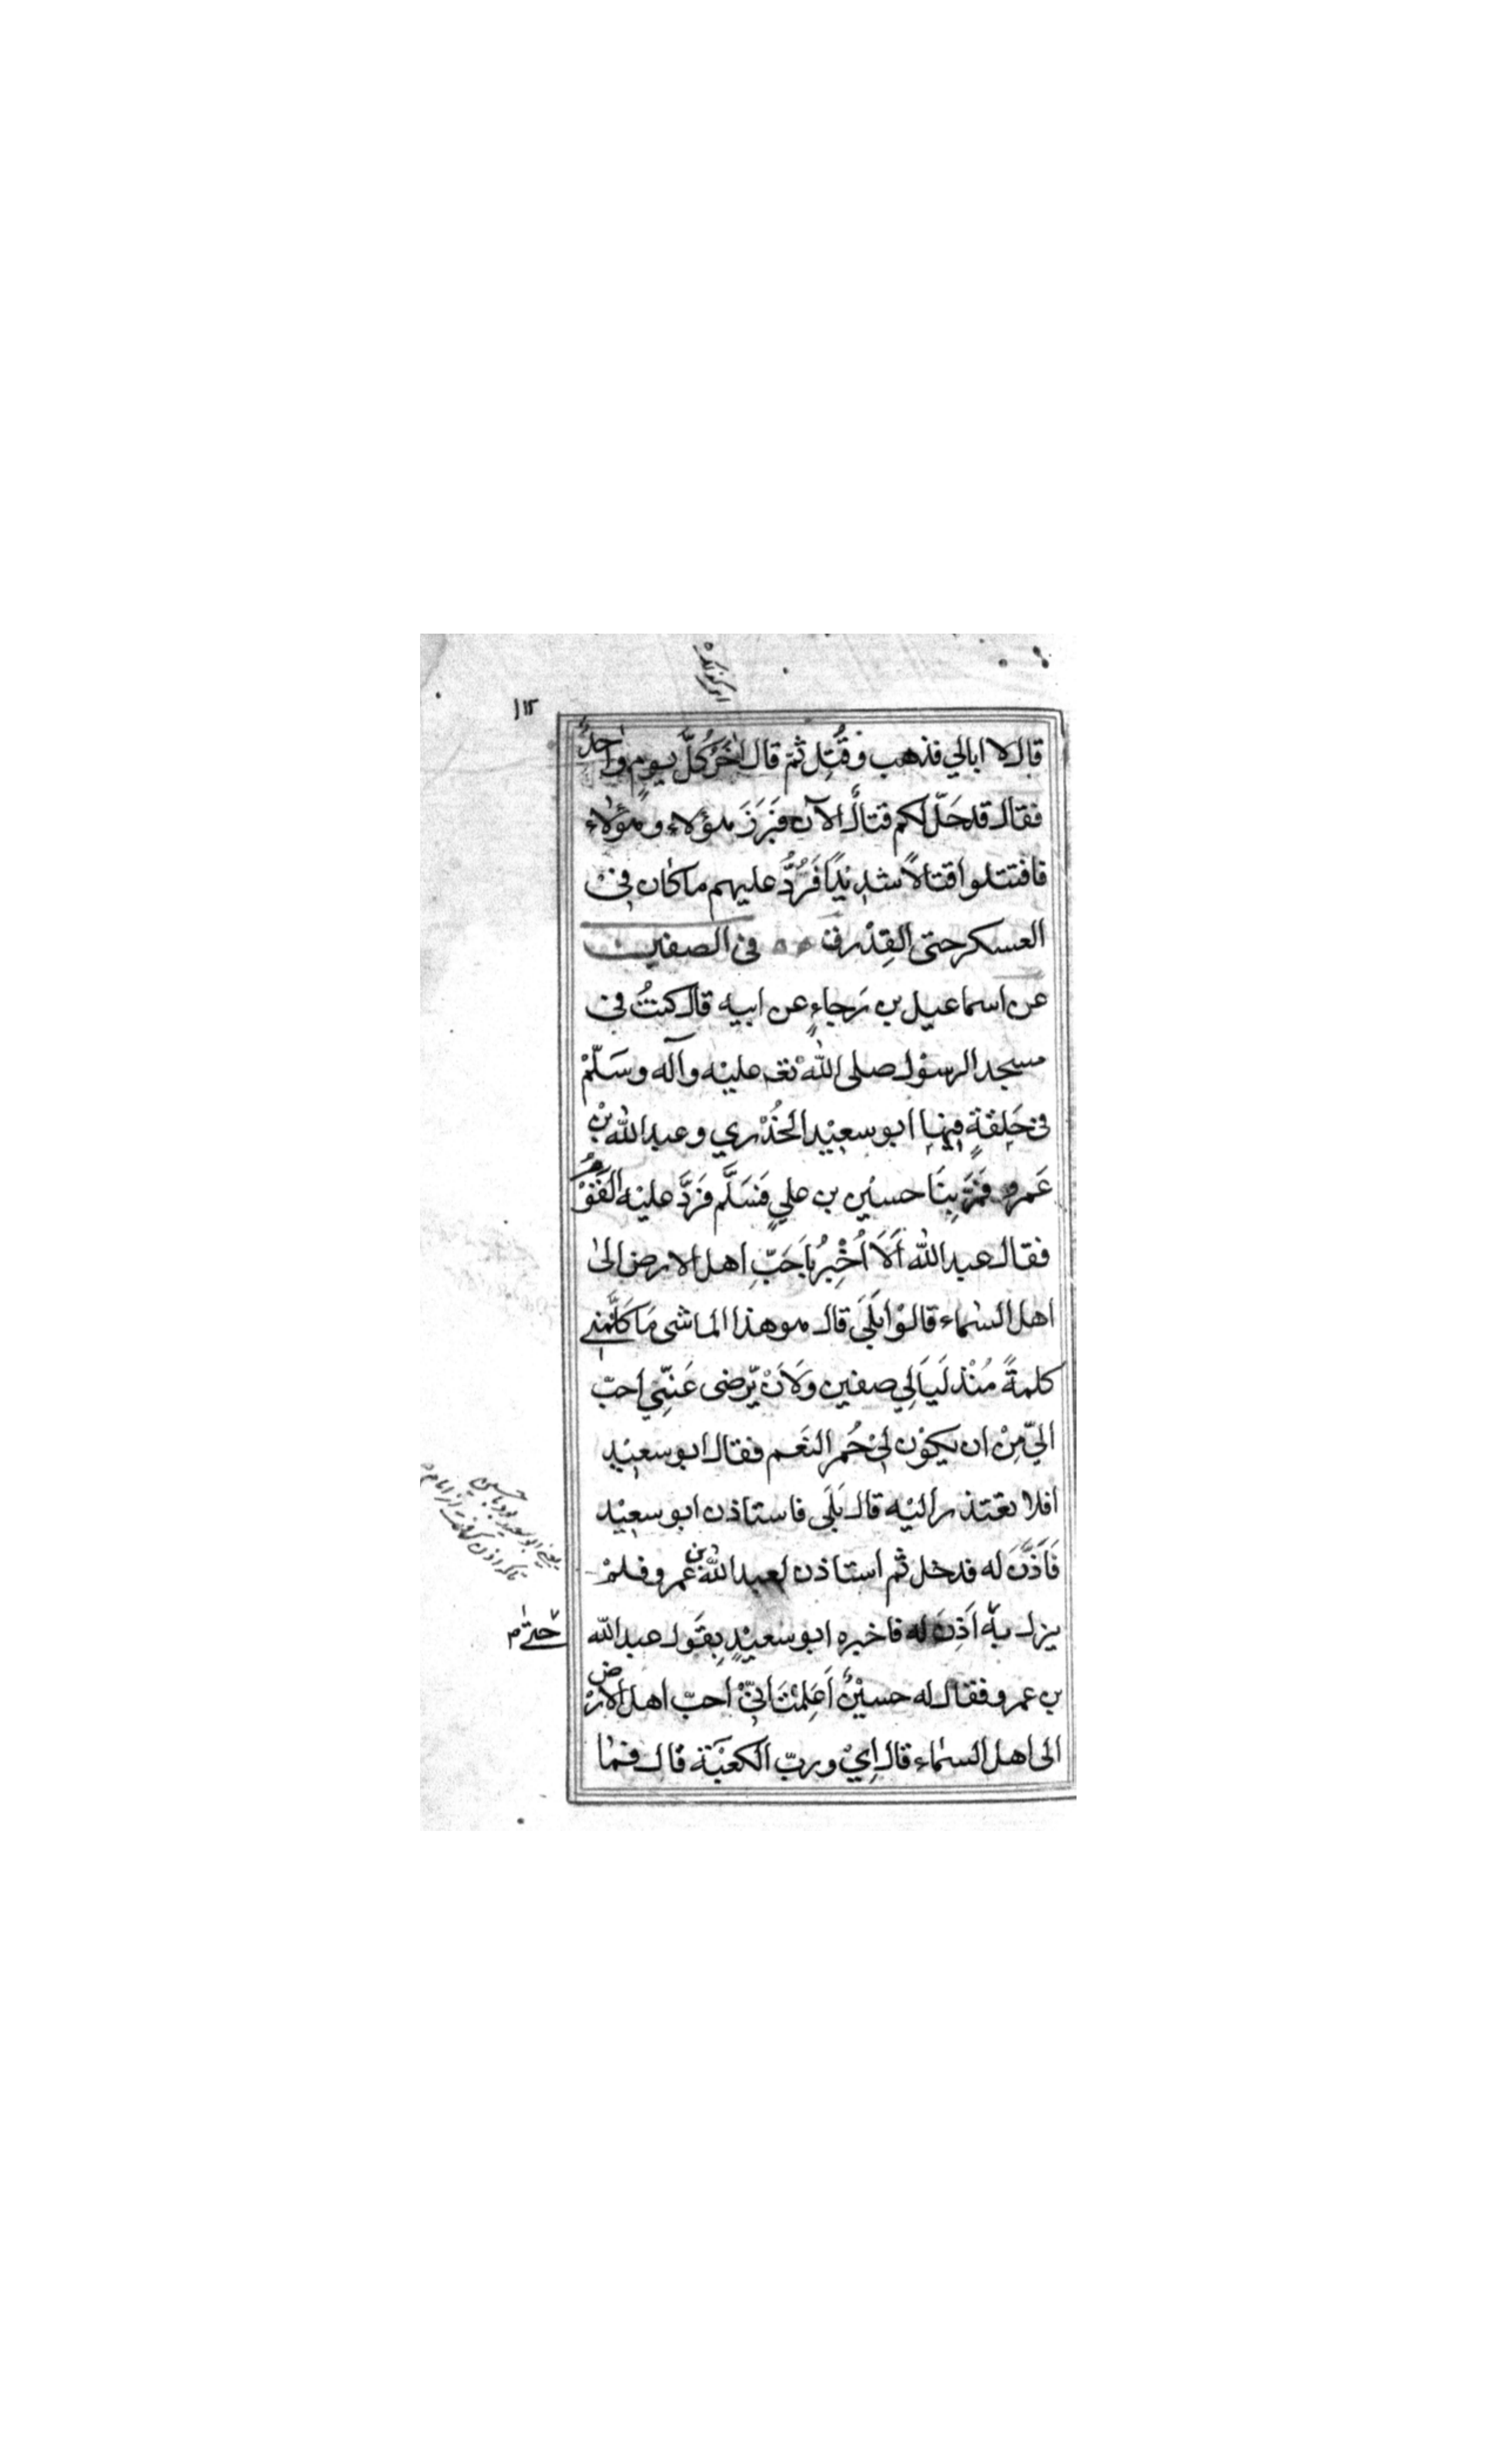 ١١٢
قال لا ابالي فذهب و قُتِل ثمّ قال اٰخَرُ كلَّ يومٍ واحدٌ
فقال قد حَلّ لكم قتالُ الآن فبَرَزَ هؤلاء و هؤلاء
فاقتتلوا قتالاً شديدًا فَرُدَّ عليهم ما كان في
العسكر حتى القِدْر في الصفين
عن اسماعيل بن رَجاءٍ عن ابيه قال كنتُ في
مسجد الرسول صلى اللّٰه تع عليْه وآله وسَلّمْ
في حَلِقةٍ فيها ابو سعيْد الخُذْري و عبد اللّٰه بن
عَمرو فمَرَّ بِنَا حسيْن بن عليٍ فسَلَّم فرَدَّ عليْه القَوْمُ
فقال عبد اللّٰه اَلَا اُخْبِرُ باَحَبِّ اهل الارض الىٰ
اهل السماء قالوْا بَلَى قال هو هذا الماشى مَا كَلَّمَنِي
كلمةً مُنْذ لَيَالِي صفين وَلَاَنْ يّرضى عَنِّي احبّ
اليّ مِنْ ان يكوْن لِيْ حُمر النَعم فقال ابو سعيْد
افلا تعْتذر اليْه قال بَلَى فاستاذن ابو سعيْد
فَاَذَّنَ له فدخل ثم استاذن لعبد اللّٰه بن عمرو فلمْ
يزل به اَذِنَ له فاخبره ابو سعيْدٍ بِقَول عبد اللّٰه
حتّٰى م
بن عمرو فقال له حسيْنٌ اَعَلِمْتَ انّيْ احبّ اهل الارْض
الى اهل السماء قال اِيْ و ربّ الكعْبَة قال فما